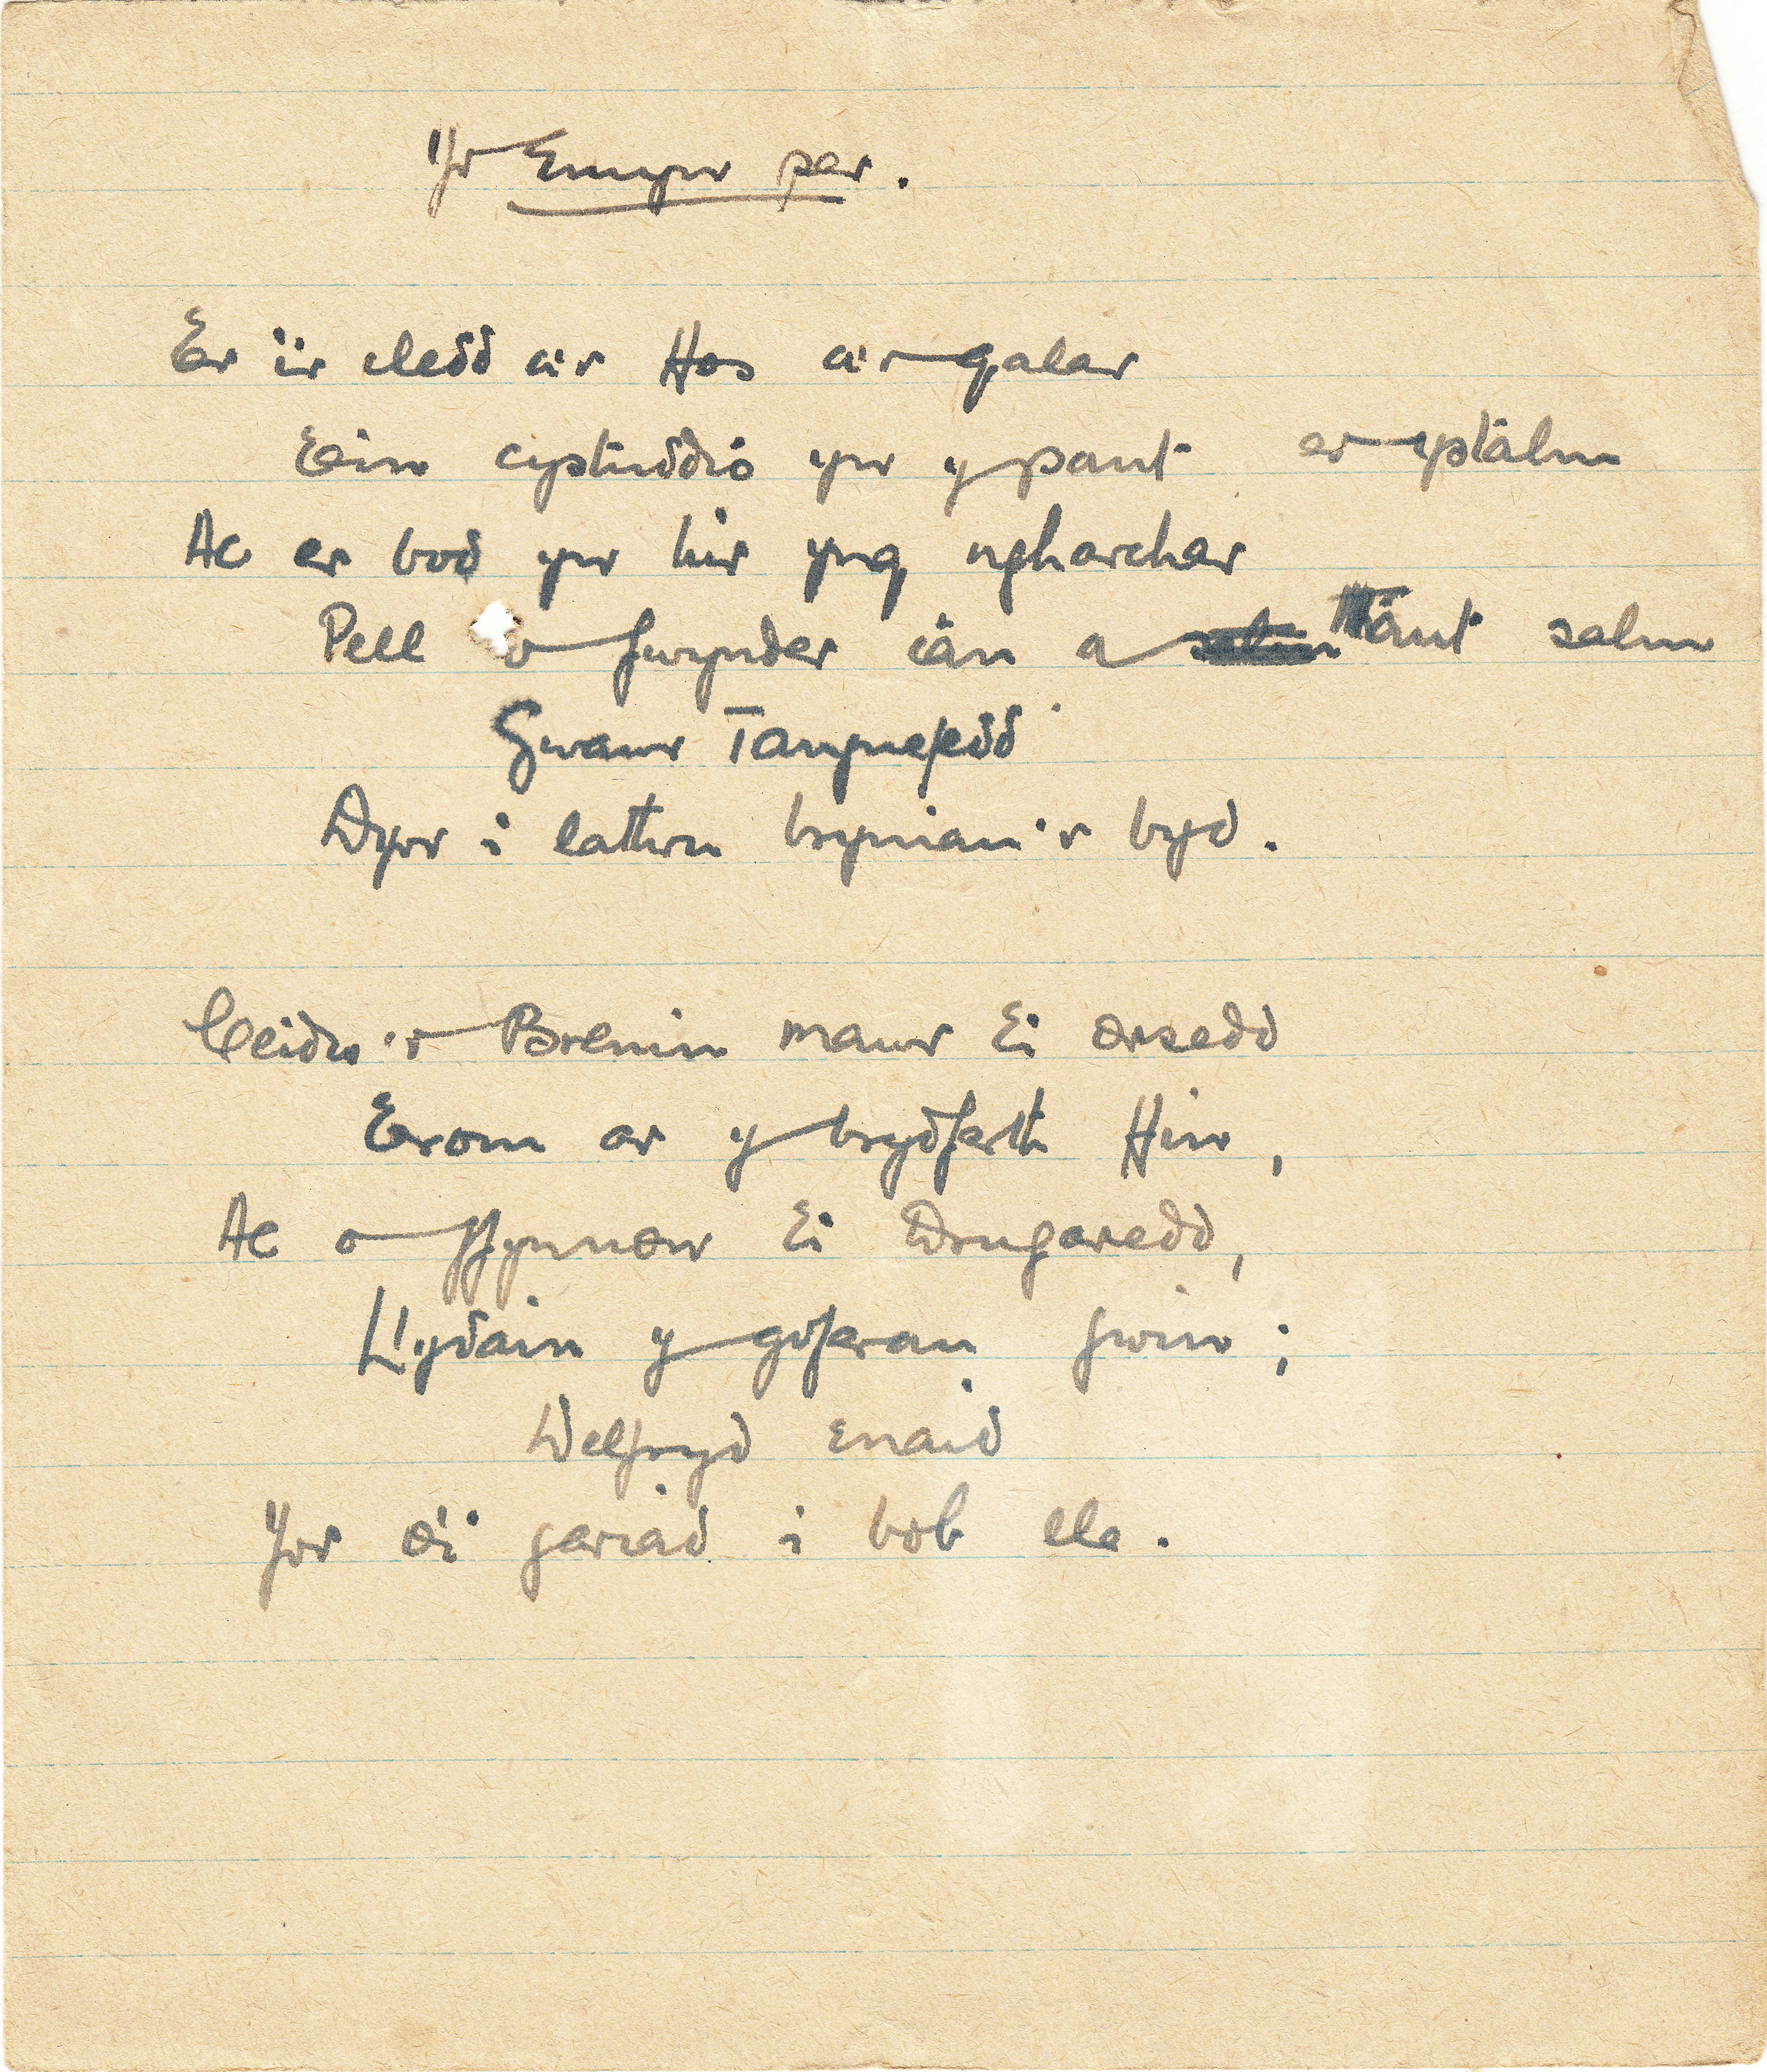 Yr Emyn per.
Er i'r cledd a'r Haf a'r galar
Ein cystuddio yn y pant er ystalm
Ac er bod yn hir yng ngharchar
Pell o fwynder cân a thant salm
Gwawr Tangnefedd
Dyrr i lathru bryniau'r byd.
Ceidw'r Brenin mawr Ei orsedd
Erom ar y brydferth Hin,
Ac o ffynnon Ei Drugaredd,
Llydain y goferau gwin;
Delfryd enaid
Yw Ei gariad i bob cle.